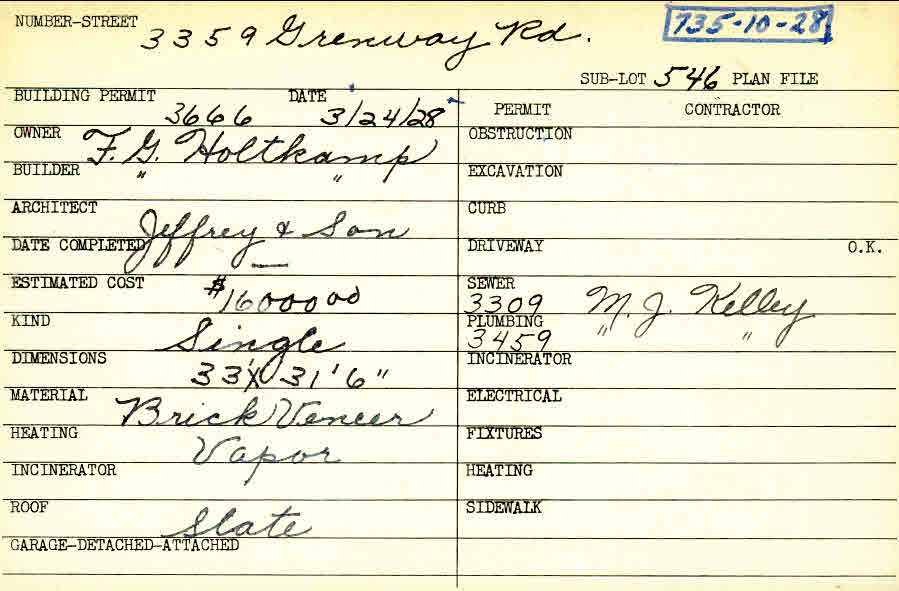 NUMBER-STREET 3359 Grenway Rd. 735-10-28
SUB-LOT 546 PLAN FILE
BUILDING PERMIT 3666 DATE 3/24/28
PERMIT CONTRACTOR
OWNER F. G. Holtkamp
BUILDER " "
ARCHITECT Jeffrey & Son
DATE COMPLETED —
ESTIMATED COST $16000 00
KIND Single
DIMENSIONS 33' X 31' 6"
MATERIAL Brick Veneer
HEATING Vapor
INCINERATOR
ROOF Slate
GARAGE-DETACHED-ATTACHED
OBSTRUCTION
EXCAVATION
CURB
DRIVEWAY O.K.
SEWER 3309 M. J. Kelley
PLUMBING 3459 " "
INCINERATOR
ELECTRICAL
FIXTURES
HEATING
SIDEWALK